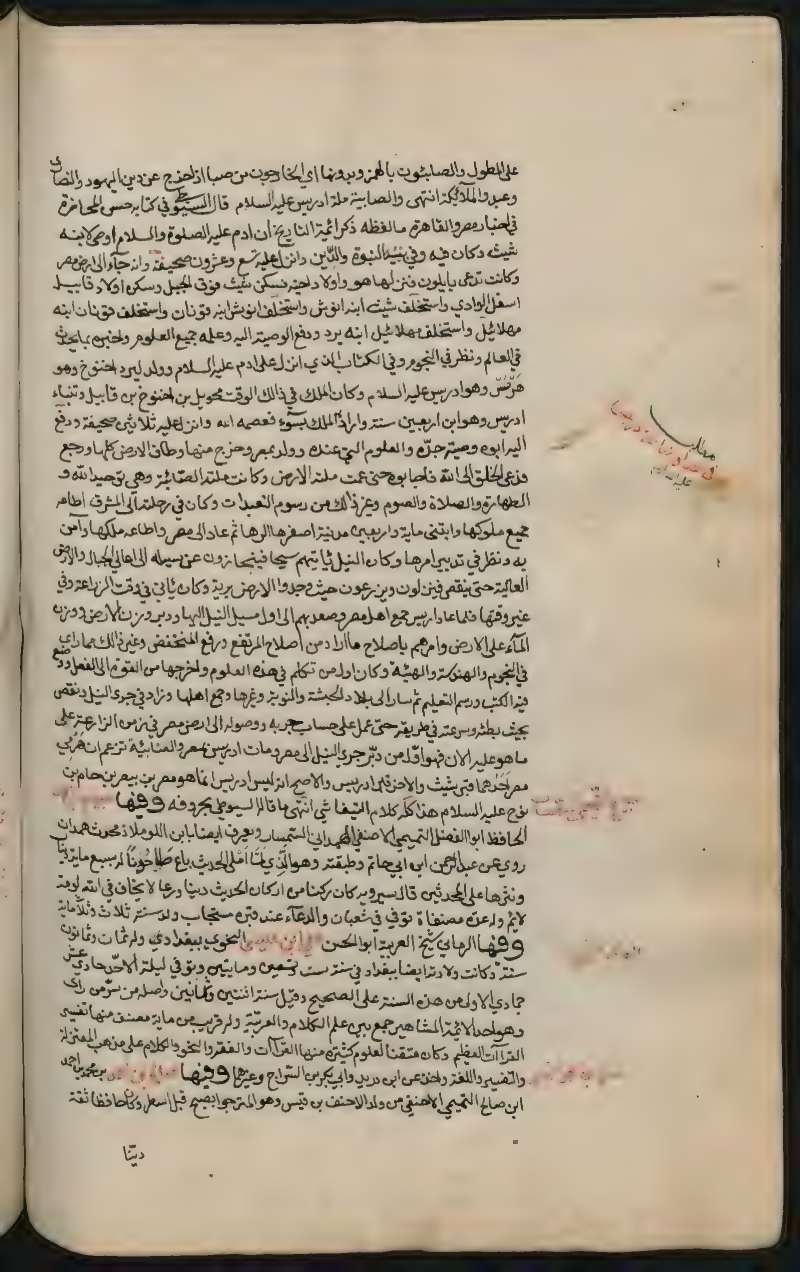 على المطول والصابئون بالهمز وبدونها اي الخارجون من صبا اذا خرج عن دين اليهود والنصارى
وعبدوا الملائكة انتهى والصابية ملة ادريس عليه السلام قال السيوطي في كتابه حسن المحاضرة
في اخبار مصر والقاهرة ما لفظه ذكر ائمة التاريخ ان ادم عليه الصلوة والسلام اوصى لابنه
شيث وكان فيه وفي بنيه النبوة والدين وانزل عليه تسع وعشرون صحيفة وانه جاء الى ارض مصر
وكانت تدعى بايلون فنزلها هو واولاد اخيه فسكن شيث فوق الجبل وسكن اولاد قابيل
اسفل الوادي واستخلف شيث ابنه انوش واستخلف انوش ابنه قونان واستخلف قونان ابنه
مهلائيل واستخلف مهلائيل ابنه يرد ودفع الوصية اليه وعلمه جميع العلوم واخبره بما يحدث
في العالم ونظر في النجوم وفي الكتاب الذي انزل على ادم عليه السلام وولد ليرد اخنوخ وهو
هرمس وهو ادريس عليه السلام وكان الملك في ذالك الوقت محويل بن اخنوخ بن قابيل وتنباء
ادريس وهو ابن اربعين سنة واراد الملك بسوء فعصمه الله وانزل عليه ثلاثين صحيفة ودفع
اليه ابوه وصية جده والعلوم التي عنده وولد بمصر وخرج منها وطاف الارض كلها ورجع
ودعى الخلق الى الله فاجابوه حتى عمت ملته الارض وكانت ملته الصائبة وهي توحيد الله و
الطهارة والصلاة والصوم وغير ذلك من رسوم التعبدات وكان في رحلته الى المشرق اطاعه
جميع ملوكها وابتنى ماية واربعين مدينة اصغرها الرها ثم عاد الى مصر واطاعه ملكها وآمن
به ونظر في تدبير امرها وكان النيل ياتيهم سيحا فينحازون عن مسيله الى اعالي الجبال والارض
العالية حتى ينقص فينزلون ويزرعون حيث وجدوا الارض برية وكان ياتي في وقت الزراعة وفي
غير وقتها فلما عاد ادريس جمع اهل مصر وصعد بهم الى اول مسيل النيل اليها ودبر وزن الارض ووزن
الماء على الارض وامرهم باصلاح ما اراد من اصلاح المرتفع ورفع المنخفض وغير ذالك مما راى
في النجوم والهندسة والهيئة وكان اول من تكلم في هذه العلوم واخرجها من القوة الى الفعل ووضع
فيه الكتب ورسم التعليم ثم سار الى بلاد الحبشة والنوبة وغيرها وجمع اهلها وزاد في جرى النيل ونقص
بحيث بطئه وسرعته في طريقه حتى عمل على حساب جريه ووصوله الى ارض مصر في زمن الزراعة على
ما هو عليه الان فهو اول من دبر جرى النيل الى مصر ومات ادريس بمصر والصابئة تزعم ان هرمي
مصر احدهما قبر شيث والاخر قبر ادريس والاصح انه ليس ادريس انما هو مصر بن بيصر بن حام بن
نوح عليه السلام هذا كله كلام التيفاشي انتهى ما قاله السيوطي بحروفه وفيها
الحافظ ابو الفضل التميمي الاحنفي الهمداني السمسار ويعرف ايضا بابن اللوملاذ محدث همدان
روى عن عبد الرحمن ابن ابي حاتم وطبقته وهو الذي لما املى الحديث باع طاحونا له بسبع ماية دينار
ونثرها على المحدثين قال شيرويه كان ركنا من اركان الحديث دينا ورعا لا يخاف في الله لومة
لائم وله عدة مصنفاة توفي في شعبان والدعاء عند قبره مستجاب ولد سنة ثلاث وثلاثماية
وفيها الرماني شيخ العربية ابو الحسن علي ابن عيسى النحوي ببغداد وله ثمان وثمانون
سنة وكانت ولادته ايضا ببغداد في سنة ست وتسعين ومايتين وتوفي ليلة الاحد حادي عشر
جمادي الاولى من هذه السنة على الصحيح وقيل سنة اثنتين وثمانين واصله من سر من راى
وهو احد الائمة المشاهير جمع بين علم الكلام والعربية وله قريب من ماية مصنف منها تفسير
القرآن العظيم وكان متقنا لعلوم كثيرة منها القراآت والفقه والنحو والكلام على مذهب المعتزلة
والتفسير واللغة واخذ عن ابن دريد وابي بكر بن السراج وغيرهما وفيها بن محمد بن احمد
ابن صالح التميمي الاحنفي من ولد الاحنف بن قيس وهو المترجم وكان حافظا ثقة
دينا
مطلب
عليه السلام